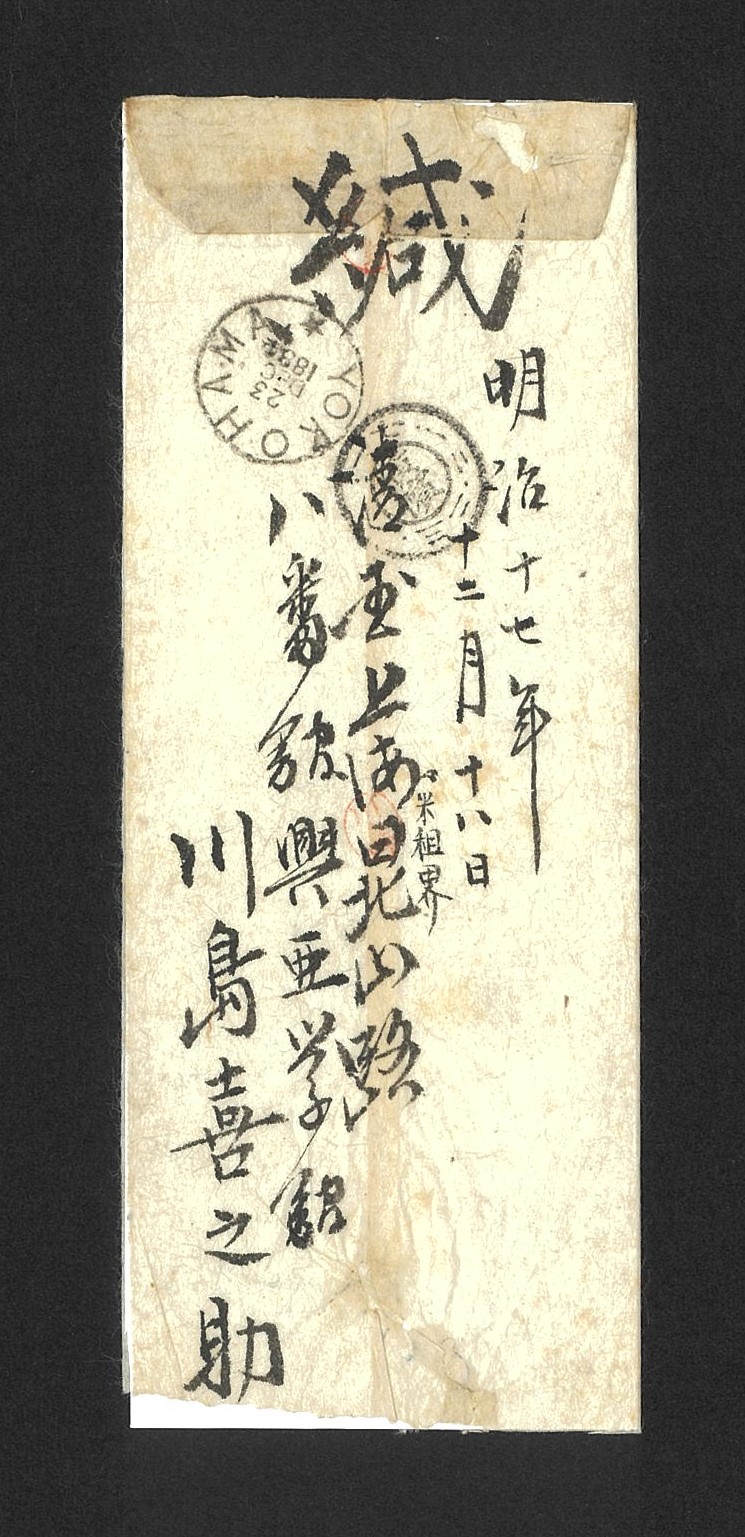 緘
明治十七年
十二月十八日
清国上海
米租界
北山路
八番館興亜学館
川島喜之助
YOKOHAMA
23
DEC